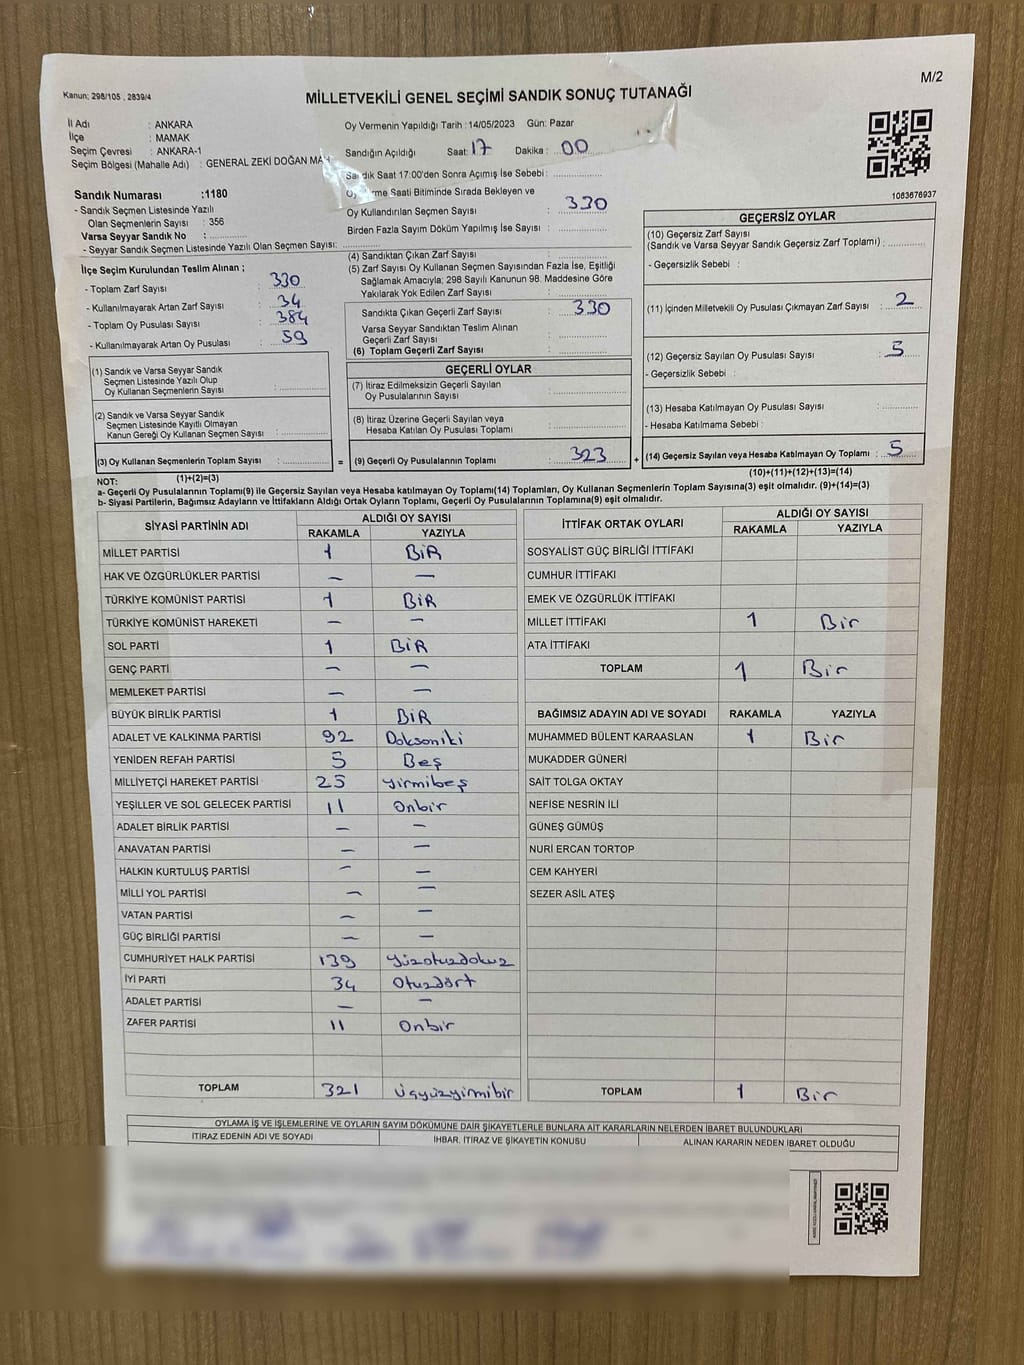 M/2
Kanun: 298/105 , 2839/4
MİLLETVEKİLİ GENEL SEÇİMİ SANDIK SONUÇ TUTANAĞI
İl Adı : ANKARA
İlçe : MAMAK
Seçim Çevresi : ANKARA-1
Seçim Bölgesi (Mahalle Adı) : GENERAL ZEKİ DOĞAN MAH
Oy Vermenin Yapıldığı Tarih : 14/05/2023 Gün: Pazar
Sandığın Açıldığı Saat: 17 Dakika : 00
Sandık Saat 17:00'den Sonra Açımış İse Sebebi :
Oy Verme Saati Bitiminde Sırada Bekleyen ve
Oy Kullandırılan Seçmen Sayısı : 330
Birden Fazla Sayım Döküm Yapılmış İse Sayısı :
1083676937
Sandık Numarası :1180
- Sandık Seçmen Listesinde Yazılı
Olan Seçmenlerin Sayısı : 356
Varsa Seyyar Sandık No :
- Seyyar Sandık Seçmen Listesinde Yazılı Olan Seçmen Sayısı:
İlçe Seçim Kurulundan Teslim Alınan ;
- Toplam Zarf Sayısı : 330
- Kullanılmayarak Artan Zarf Sayısı : 34
- Toplam Oy Pusulası Sayısı : 384
- Kullanılmayarak Artan Oy Pusulası : 59
(1) Sandık ve Varsa Seyyar Sandık
Seçmen Listesinde Yazılı Olup
Oy Kullanan Seçmenlerin Sayısı :
(2) Sandık ve Varsa Seyyar Sandık
Seçmen Listesinde Kayıtlı Olmayan
Kanun Gereği Oy Kullanan Seçmen Sayısı :
(3) Oy Kullanan Seçmenlerin Toplam Sayısı :
(1)+(2)=(3)
(4) Sandıktan Çıkan Zarf Sayısı :
(5) Zarf Sayısı Oy Kullanan Seçmen Sayısından Fazla İse, Eşitliği
Sağlamak Amacıyla; 298 Sayılı Kanunun 98. Maddesine Göre
Yakılarak Yok Edilen Zarf Sayısı :
Sandıkta Çıkan Geçerli Zarf Sayısı : 330
Varsa Seyyar Sandıktan Teslim Alınan
Geçerli Zarf Sayısı :
(6) Toplam Geçerli Zarf Sayısı :
GEÇERLİ OYLAR
(7) İtiraz Edilmeksizin Geçerli Sayılan
Oy Pusulalarının Sayısı :
(8) İtiraz Üzerine Geçerli Sayılan veya
Hesaba Katılan Oy Pusulası Toplamı :
= (9) Geçerli Oy Pusulalarının Toplamı : 323 +
GEÇERSİZ OYLAR
(10) Geçersiz Zarf Sayısı
(Sandık ve Varsa Seyyar Sandık Geçersiz Zarf Toplamı) :
- Geçersizlik Sebebi :
(11) İçinden Milletvekili Oy Pusulası Çıkmayan Zarf Sayısı : 2
(12) Geçersiz Sayılan Oy Pusulası Sayısı : 5
- Geçersizlik Sebebi :
(13) Hesaba Katılmayan Oy Pusulası Sayısı :
- Hesaba Katılmama Sebebi :
(14) Geçersiz Sayılan veya Hesaba Katılmayan Oy Toplamı : 5
(10)+(11)+(12)+(13)=(14)
NOT:
a- Geçerli Oy Pusulalarının Toplamı(9) ile Geçersiz Sayılan veya Hesaba katılmayan Oy Toplamı(14) Toplamları, Oy Kullanan Seçmenlerin Toplam Sayısına(3) eşit olmalıdır. (9)+(14)=(3)
b- Siyasi Partilerin, Bağımsız Adayların ve İttifakların Aldığı Ortak Oyların Toplamı, Geçerli Oy Pusulalarının Toplamına(9) eşit olmalıdır.
SİYASİ PARTİNİN ADI ALDIĞI OY SAYISI
RAKAMLA YAZIYLA
MİLLET PARTİSİ 1 BİR
HAK VE ÖZGÜRLÜKLER PARTİSİ – –
TÜRKİYE KOMÜNİST PARTİSİ 1 BİR
TÜRKİYE KOMÜNİST HAREKETİ – –
SOL PARTİ 1 BİR
GENÇ PARTİ – –
MEMLEKET PARTİSİ – –
BÜYÜK BİRLİK PARTİSİ 1 BİR
ADALET VE KALKINMA PARTİSİ 92 Doksaniki
YENİDEN REFAH PARTİSİ 5 Beş
MİLLİYETÇİ HAREKET PARTİSİ 25 yirmibeş
YEŞİLLER VE SOL GELECEK PARTİSİ 11 Onbir
ADALET BİRLİK PARTİSİ – –
ANAVATAN PARTİSİ – –
HALKIN KURTULUŞ PARTİSİ – –
MİLLİ YOL PARTİSİ – –
VATAN PARTİSİ – –
GÜÇ BİRLİĞİ PARTİSİ – –
CUMHURİYET HALK PARTİSİ 139 Yüzotuzdokuz
İYİ PARTİ 34 Otuzdört
ADALET PARTİSİ – –
ZAFER PARTİSİ 11 Onbir
TOPLAM 321 Üçyüzyirmibir
İTTİFAK ORTAK OYLARI ALDIĞI OY SAYISI
RAKAMLA YAZIYLA
SOSYALİST GÜÇ BİRLİĞİ İTTİFAKI
CUMHUR İTTİFAKI
EMEK VE ÖZGÜRLÜK İTTİFAKI
MİLLET İTTİFAKI 1 Bir
ATA İTTİFAKI
TOPLAM 1 Bir
BAĞIMSIZ ADAYIN ADI VE SOYADI RAKAMLA YAZIYLA
MUHAMMED BÜLENT KARAASLAN 1 Bir
MUKADDER GÜNERİ
SAİT TOLGA OKTAY
NEFİSE NESRİN İLİ
GÜNEŞ GÜMÜŞ
NURİ ERCAN TORTOP
CEM KAHYERİ
SEZER ASİL ATEŞ
TOPLAM 1 Bir
OYLAMA İŞ VE İŞLEMLERİNE VE OYLARIN SAYIM DÖKÜMÜNE DAİR ŞİKAYETLERLE BUNLARA AİT KARARLARIN NELERDEN İBARET BULUNDUKLARI
İTİRAZ EDENİN ADI VE SOYADI İHBAR, İTİRAZ VE ŞİKAYETİN KONUSU ALINAN KARARIN NEDEN İBARET OLDUĞU